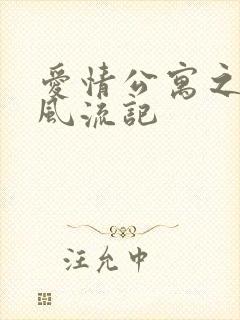 愛情公寓之
風流記
汪允中